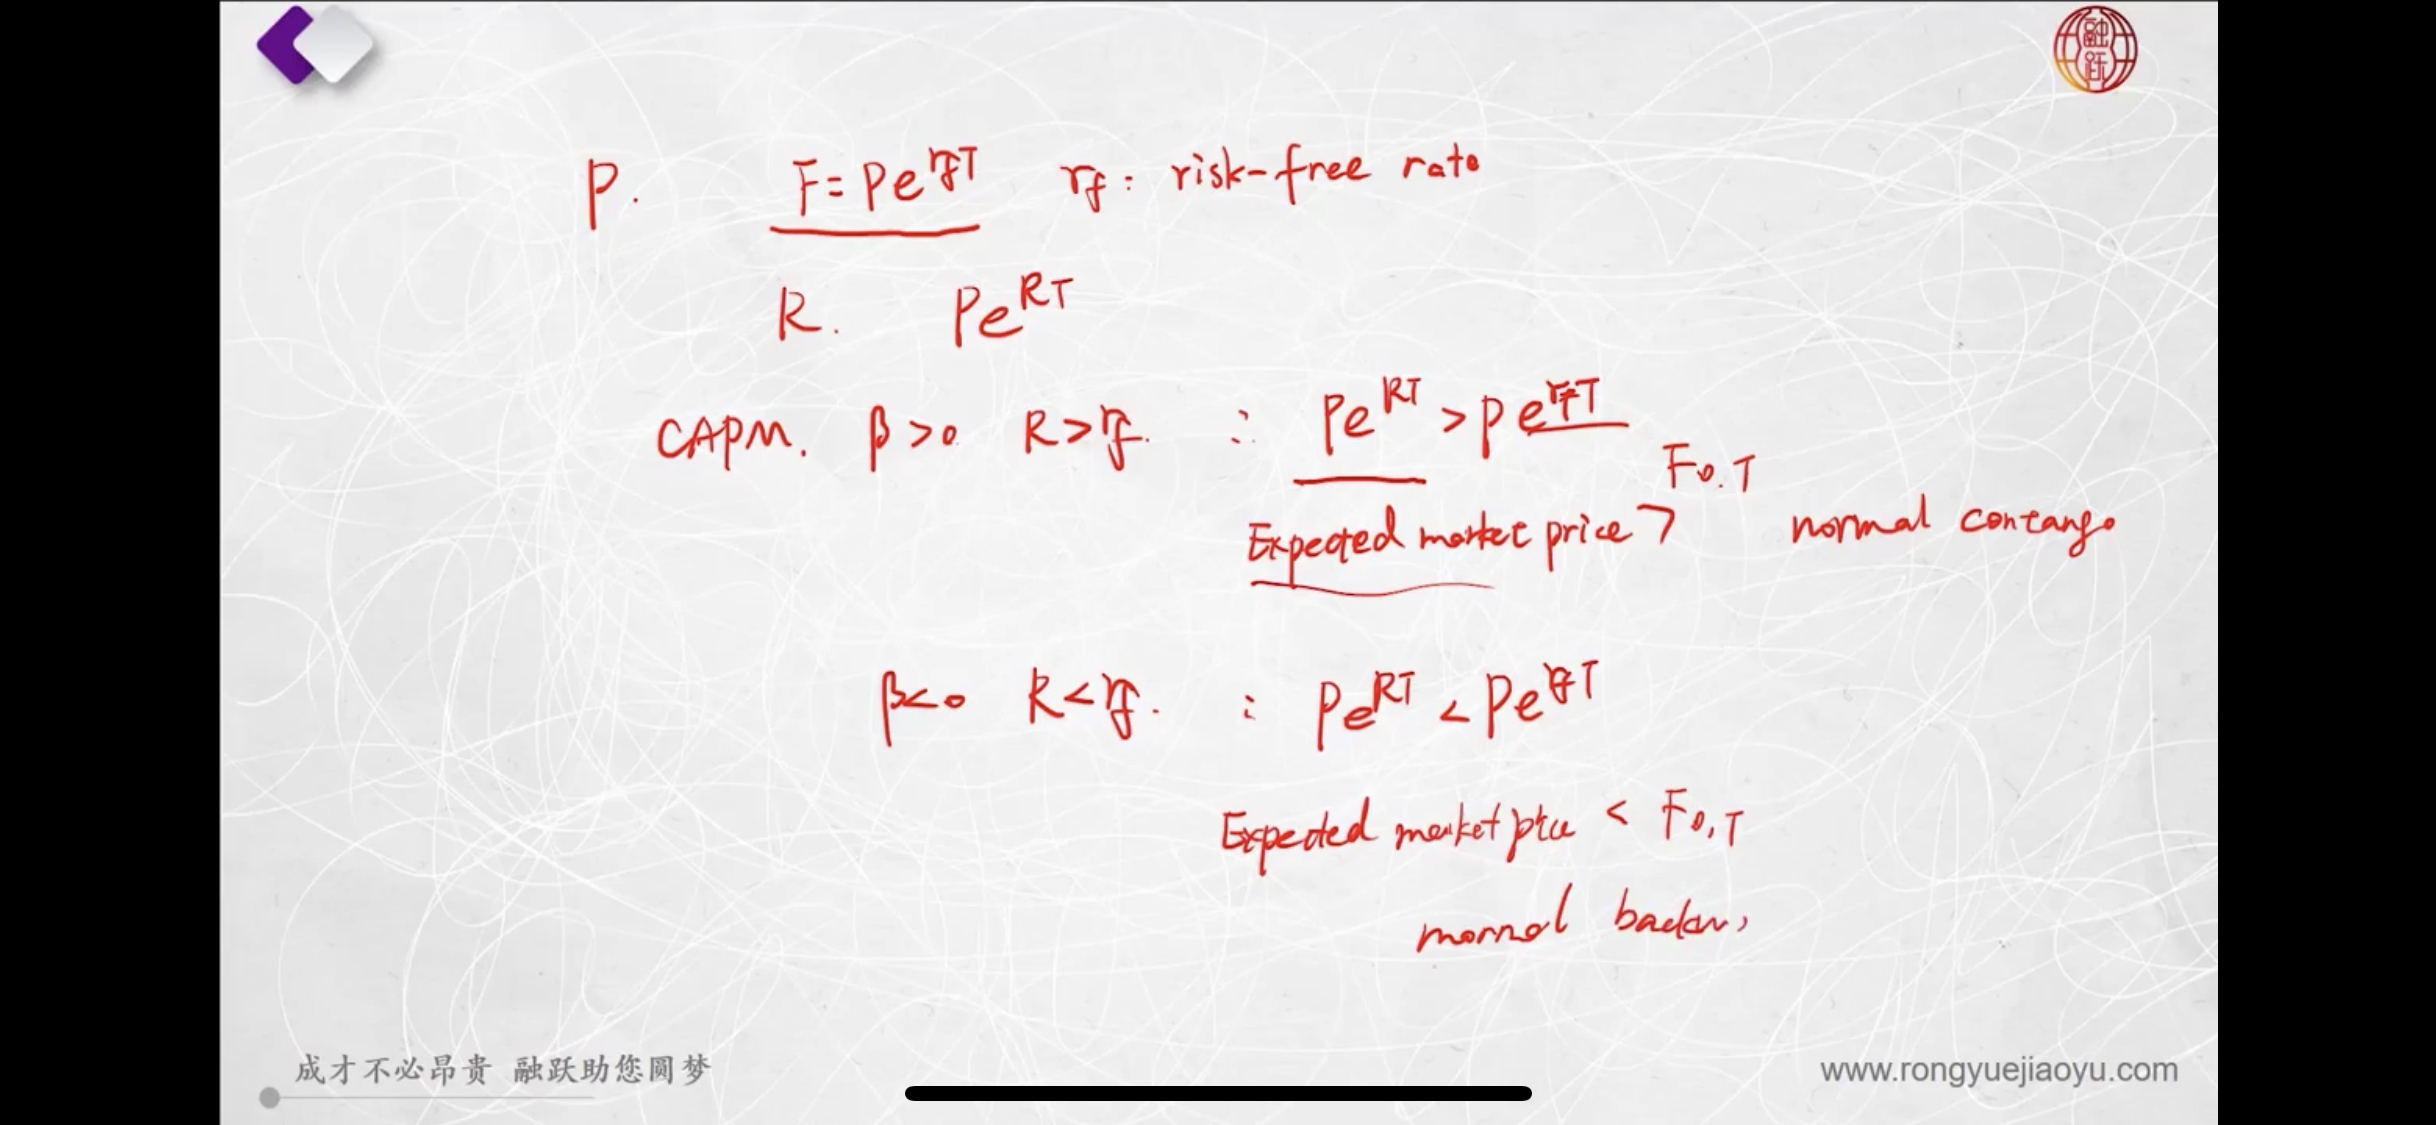 融跃
P. F = Pe^{r_f T} r_f : risk-free rate
R. Pe^{RT}
CAPM. β>0 R>r_f. ∴ Pe^{RT} > Pe^{r_f T}
F_{0,T}
Expected market price > normal contango
β<0 R<r_f. ∴ Pe^{RT} < Pe^{r_f T}
Expected market < F_{0,T}
成才不必昂贵 融跃助您圆梦
www.rongyuejiaoyu.com